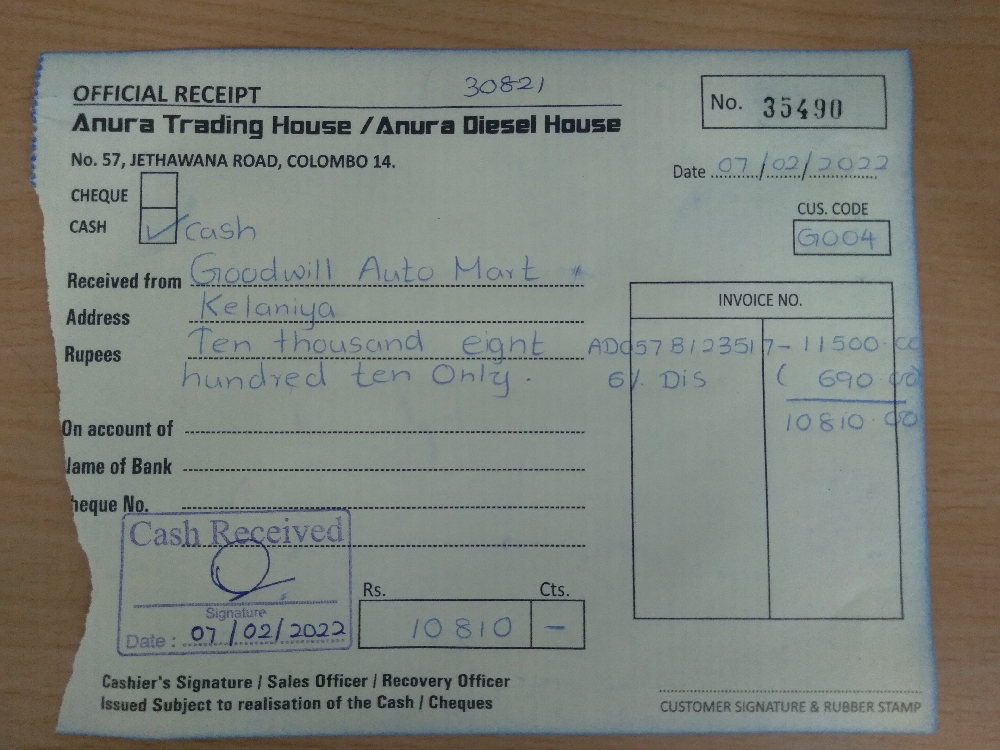 30821
OFFICIAL RECEIPT
No. 35490
Anura Trading House / Anura Diesel House
No. 57, JETHAWANA ROAD, COLOMBO 14.
Date 07/02/2022
CHEQUE
CASH ✓ cash
CUS. CODE
G004
Received from Goodwill Auto Mart
Address Kelaniya
INVOICE NO.
Rupees Ten thousand eight
hundred ten Only.
AD057B123517- 11500.00
6% Dis ( 690.00
10810.00
On account of
ame of Bank
heque No.
Cash Received
Signature
Date : 07/02/2022
Rs. Cts.
10810 –
Cashier's Signature / Sales Officer / Recovery Officer
Issued Subject to realisation of the Cash / Cheques
CUSTOMER SIGNATURE & RUBBER STAMP